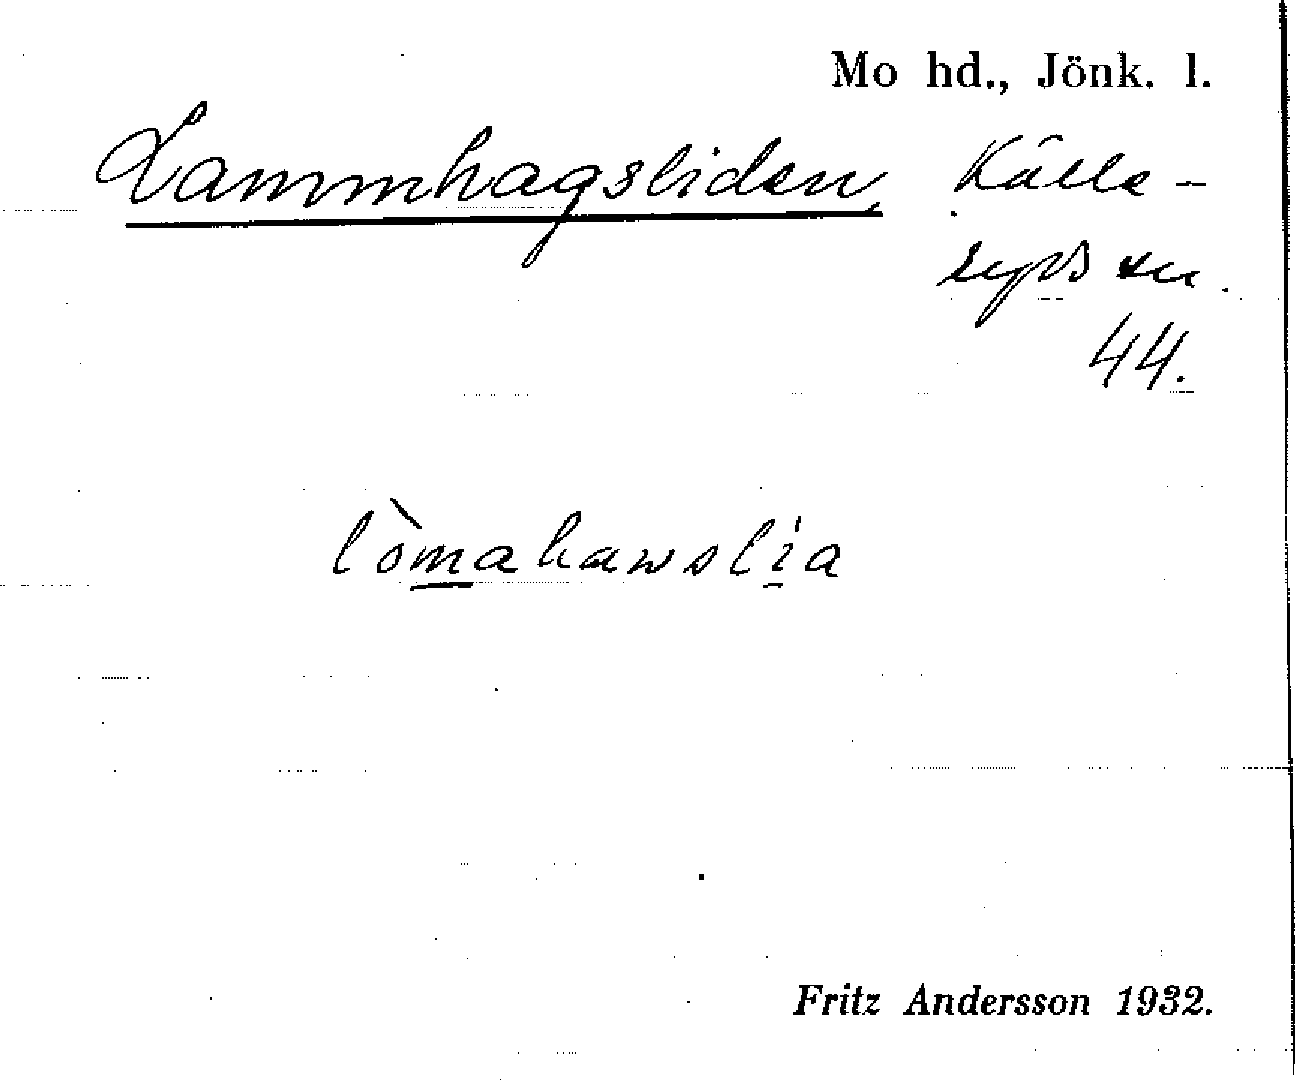 Mo hd., Jönk. l.
Lammhagsliden, Källe-
ryds sn.
44.
lòmahawslia
Fritz Andersson 1932.